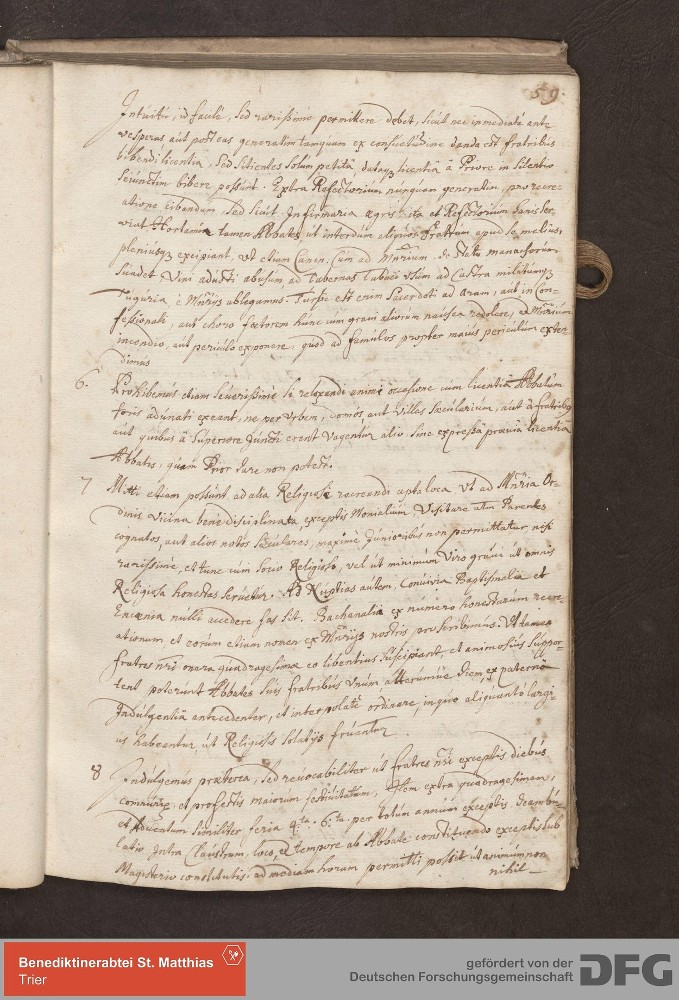 59.
Intuitu, id facile, sed rarissime permittere debet, sicut nec immediate ante
vesperas aut post eas generatim tamquam ex consuetudine danda est fratribus
bibendi licentia, sed sitientes solum petita, dataque licentia â Priore in silentio
seiunctim bibere possunt. Extra Refectorium nunquam generatim, pro recre-
atione cibandum, sed sicut Infirmaria aegris ita et Refectorium sanis ser-
viat. Hortamur tamen Abbates ut interdum aliquos Fratrum apud se melius,
pleniusque excipiant, ut etiam Canon. Cum ad Mnrium. de statu monachorum
suadet. Vini adusti abusum ad Tabernas Tabaci usum ad Castra militumque
Tuguria è Mnrijs ablegamus. Turpe est enim Sacerdoti ad Aram, aut in Con-
fessionali, aut choro faetorem hunc cum gravi aliorum nausea redolere, et Mnrium
incendio, aut periculo exponere, quod ad famulos propter maius periculum exten-
dimus
6. Prohibemus etiam severissime ne relaxandi animi occasione cum licentia Abbatum
foris adunati exeant, ne per Urbem, domos, aut Villas saecularium, aut â fratribus
aut quibus â Superiore juncti erant vagentur alio, sine expressa praevia licentia
Abbatis, quam Prior dare non potest.
7 Mitti etiam possunt ad alia Religiose recreandi apta loca ut ad Mnria Or-
dinis vicina bene disciplinata, exceptis Monialium Visitare autem Parentes
cognatos, aut alios notos saeculares, maxime Junioribus non permittatur, nisi
rarissime, et tunc cum socio Religioso, vel ut minimum Viro gravi ut omnis
Religiosa honestas servetur. Ad Nuptias autem, Convivia Baptismalia et
Encaenia nulli accedere fas sit. Bachanalia ex numero honestarum recre-
ationum et eorum etiam nomen ex Mnrijs nostris proscribimus. Ut tamen
fratres nri onera quadragesimae eo libentius suscipiant, et animosius suppor-
tent poterunt Abbates suis fratribus unum alterumve diem, ex paterna
Indulgentia antecedenter, et interpolate ordinare, in quo aliquanto largi-
us habeantur, ut Religiosis solatijs fruantur.
8 Indulgemus praeterea, sed revocabiliter ut fratres nri exceptis diebus
communionis, et profestis maiorum festivitatum, Item extra quadragesimam,
et Adventum similiter feria 4.ta 6.ta per totum annum exceptis deambu-
latio Intra Claustrum, loco, et tempore ab Abbate constituendo exceptis sub
Magisterio constitutis, ad mediam horam permitti possit ut animum non
nihil
Benediktinerabtei St. Matthias
Trier
gefördert von der
Deutschen Forschungsgemeinschaft
DFG